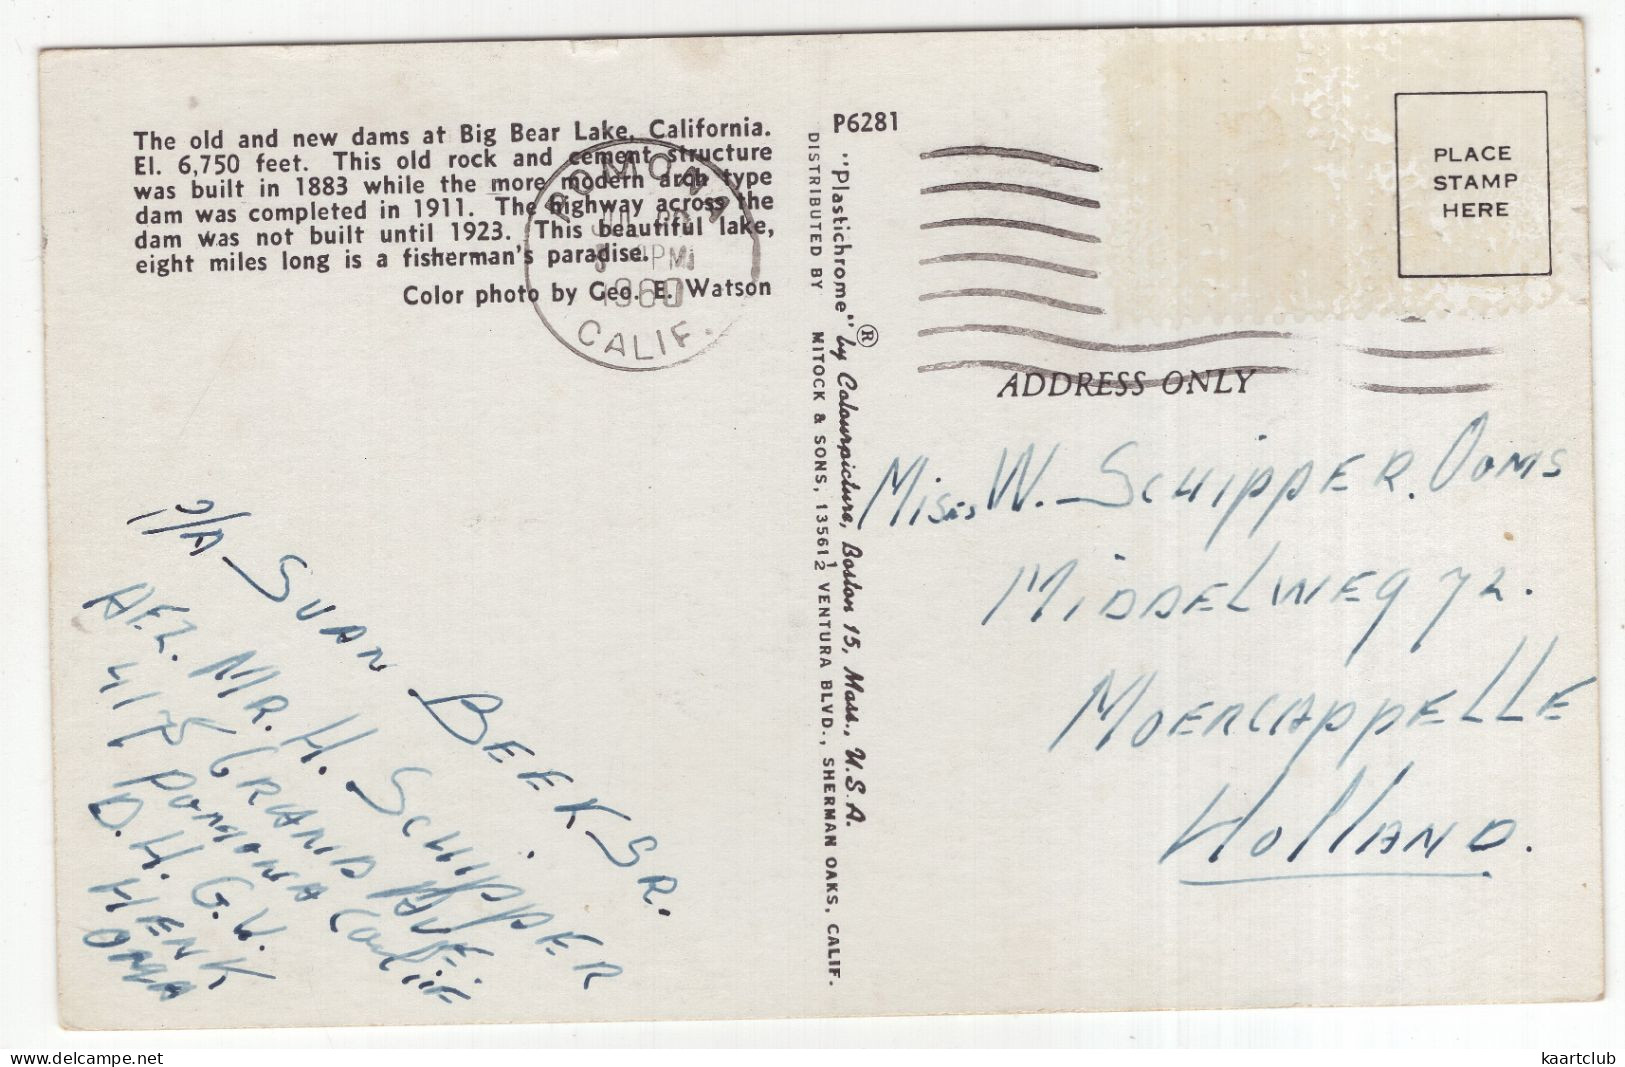 The old and new dams at Big Bear Lake, California.
El. 6,750 feet. This old rock and cement structure
was built in 1883 while the more modern arch type
dam was completed in 1911. The highway across the
dam was not built until 1923. This beautiful lake,
eight miles long is a fisherman's paradise.
Color photo by Geo. E. Watson
POMONA
PM
1960
CALIF.
P6281
"Plastichrome" ® by Colourpicture, Boston 15, Mass., U.S.A.
DISTRIBUTED BY MITOCK & SONS, 13561½ VENTURA BLVD., SHERMAN OAKS, CALIF.
PLACE
STAMP
HERE
ADDRESS ONLY
W. SCHIPPER. OOMS
MIDDELWEG
MOERCAPPELLE
HOLLAND.
SUAN BEEK SR.
AFZ. MR. H. SCHIPPER
GRAND AVE.
POMONA Calif
D. H. G. W.
HENK
OMA
www.delcampe.net
kaartclub